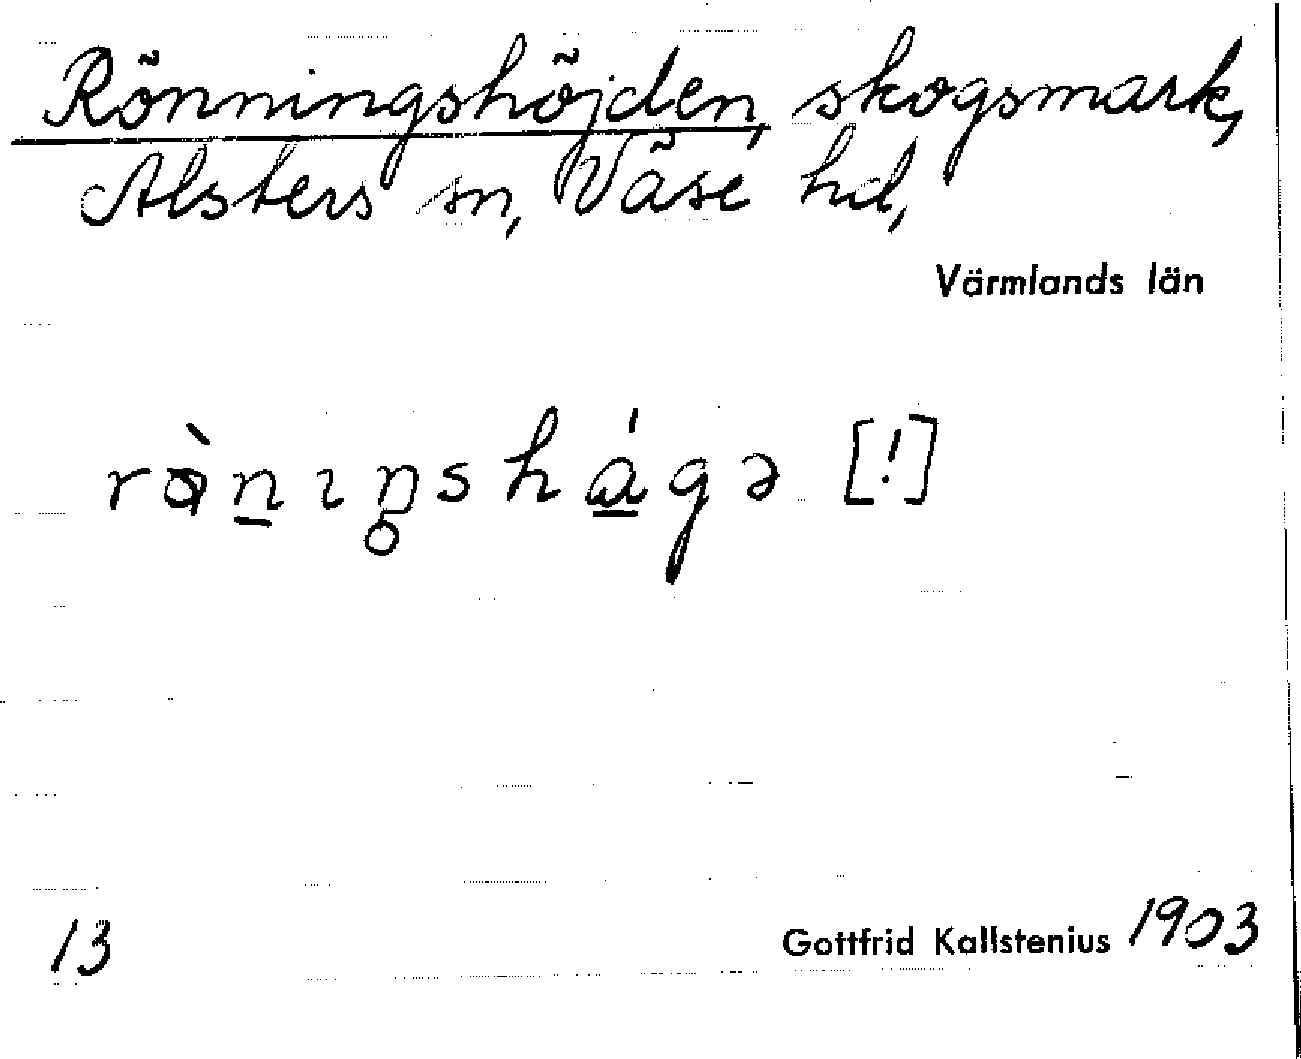 Rönningshöjden, skogsmark,
Alsters sn, Väse hd,
Värmlands län
rònıŋshágə [!]
13 Gottfrid Kallstenius 1903